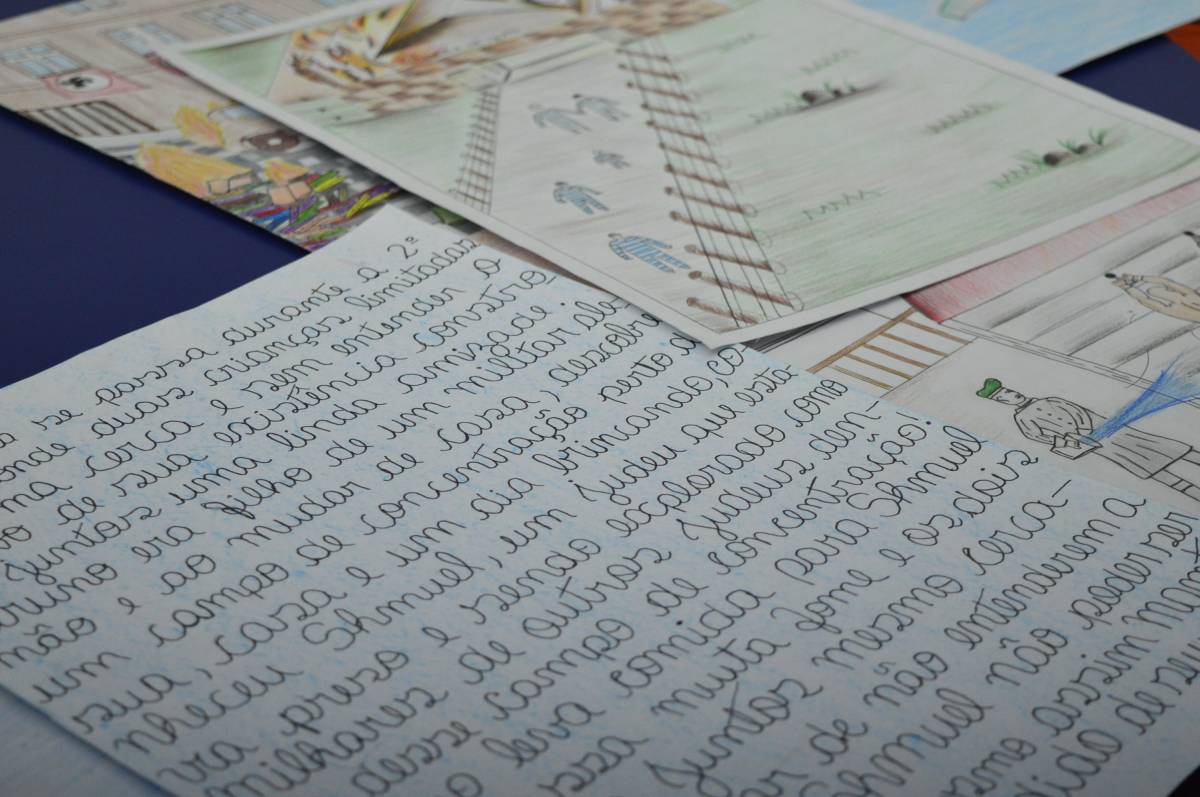 se passa durante a 2ª
onde duas crianças limitadas
ma cerca e sem entender o
vo de sua existência constro-
juntos uma linda amizade
runo era filho de um militar ale-
mão e ao mudar de casa, descobri
um campo de concentração perto d
sua, casa e um dia brincando, co
nheceu Shmuel, um judeu que esta-
va preso e sendo explorado como
milhares de outros judeus den-
desse campo de concentração.
o leva comida para Shmuel
ssa muita fome e os dois
juntos mesmo cerca-
ar de não entenderem a
Shmuel não poder ser
smo assim mant
dida de seu